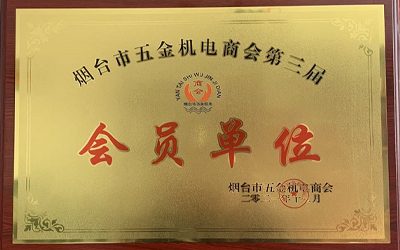 烟台市五金机电商会第三届
YAN TAI SHI WU JIN JI DIAN
商会
会员单位
烟台市五金机电商会